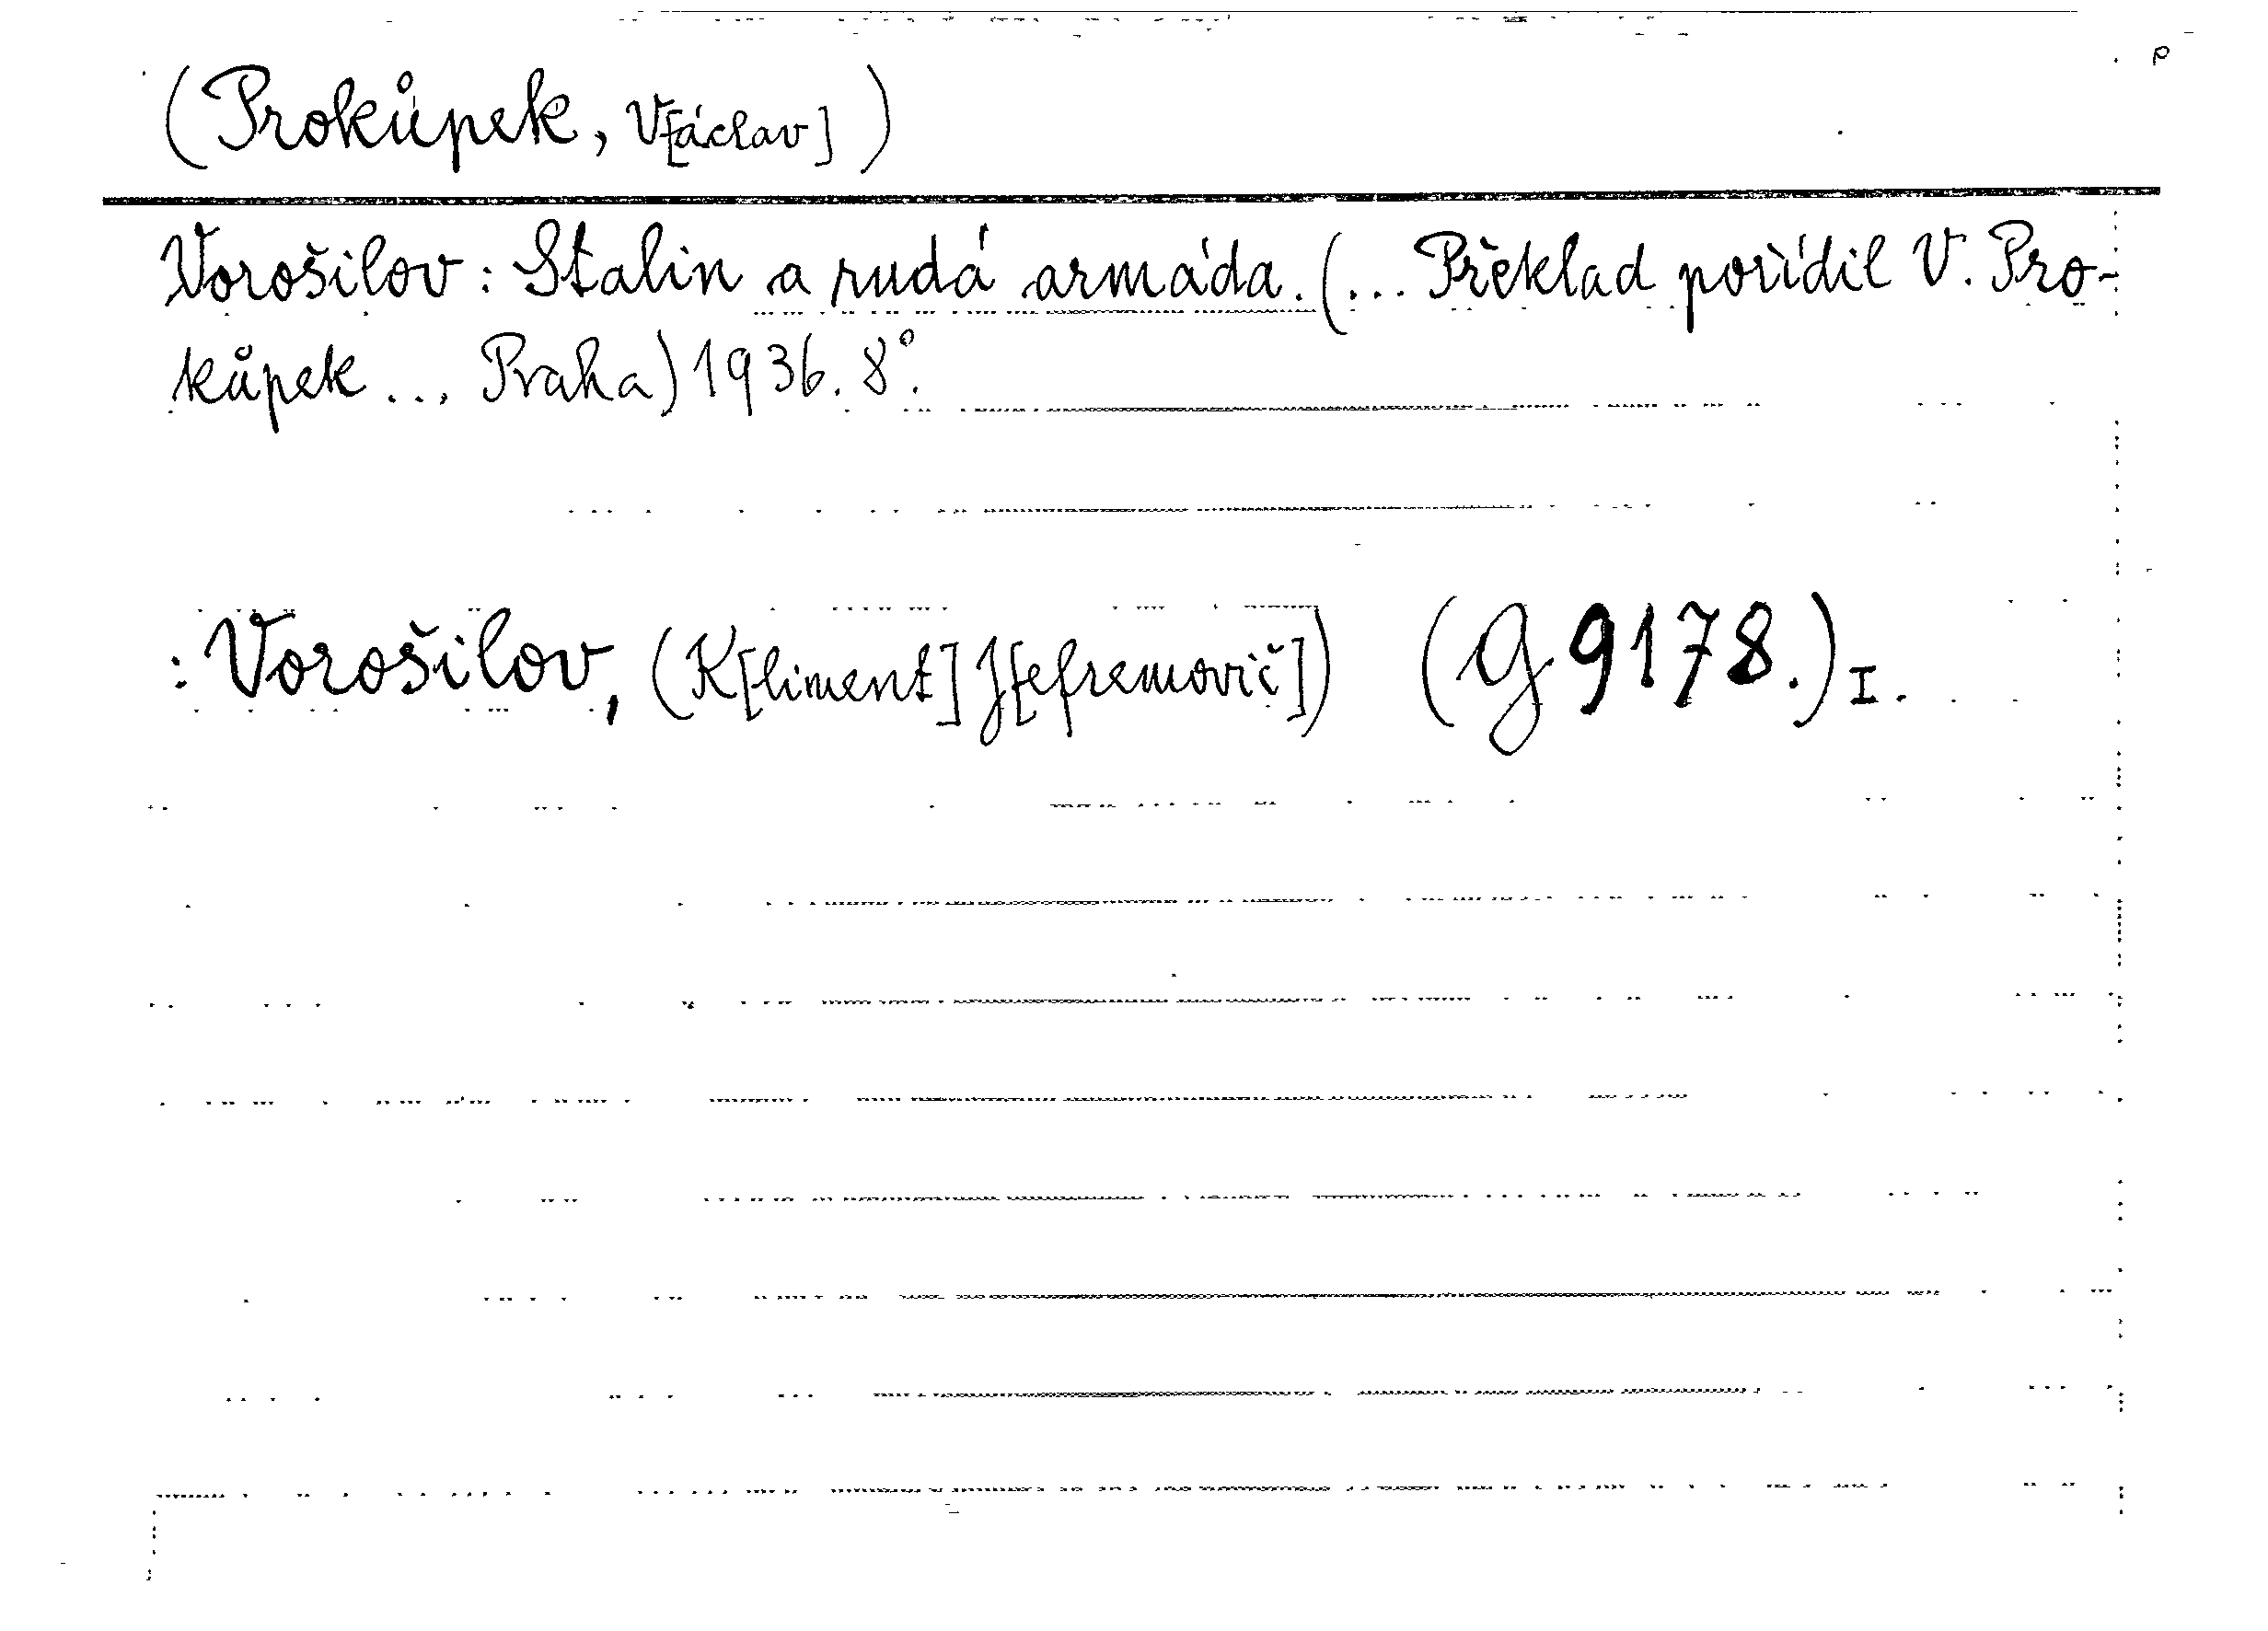 p
(Prokůpek, V[áclav])
Vorošilov: Stalin a rudá armáda. (... Překlad pořídil V. Pro-
kůpek ... Praha) 1936. 8°.
: Vorošilov, (K[liment] J[efremovič]) (G 9178.) I.